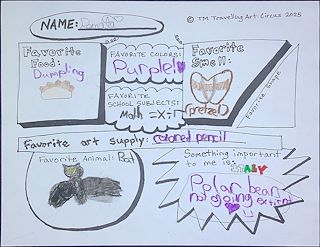 NAME:
© TM Travelling Art Circus 2025
Favorite Food:
Dumpling
FAVORITE COLORS:
Purple!
FAVORITE SCHOOL SUBJECTS:
Math
Favorite Smell:
pretzel
Favorite Shape
Favorite art supply: colored pencil
Favorite Animal: Bat
Something important
to me is: ITALY
Polar bears
not going extinct